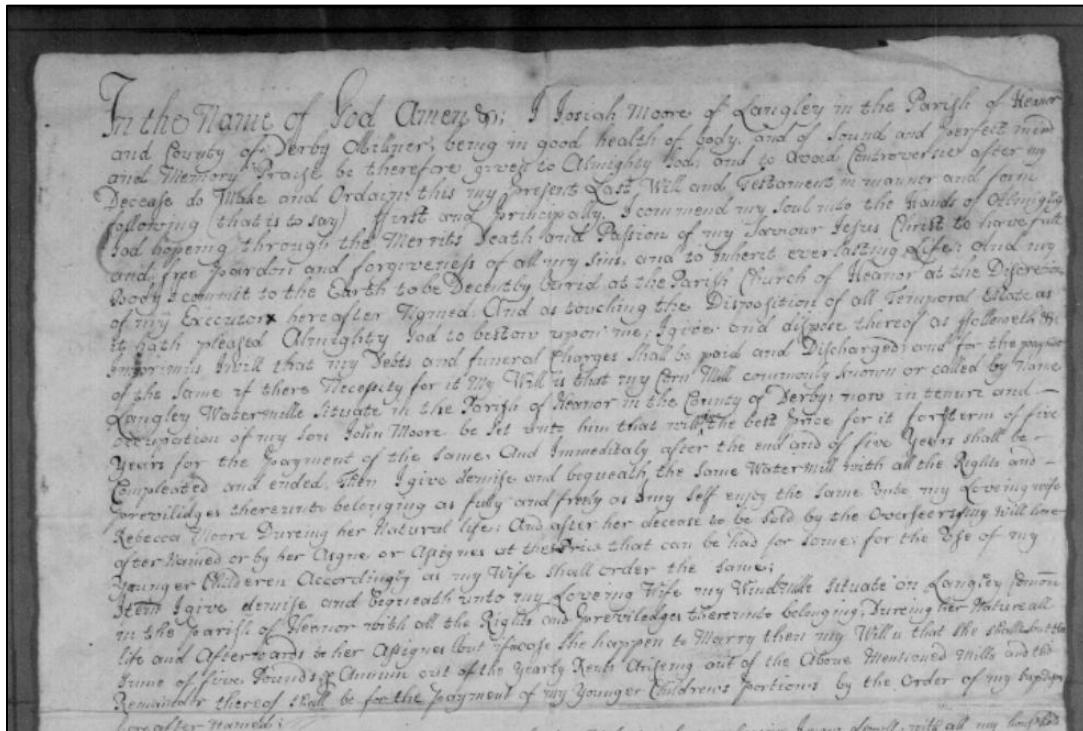 In the Name of God Amen &c: I Josiah Moore of Langley in the Parish of Heanor
and County of Derby Milner, being in good health of body, and of Sound and perfect mind
and Memory Praise be therefore given to Almighty God, and to Avoid Controversie after my
Decease do Make and Ordain this my present Last Will and Testament in manner and form
following (that is to say) First and principally, I commend my Soul into the Hands of Almighty
God hopeing through the Merrits Death and Passion of my Saviour Jesus Christ to have full
and free Pardon and forgiveness of all my Sins, and to Inherit everlasting Life; And my
Body I commit to the Earth to be Decently Burid at the Parish Church of Heanor at the Discretion
of my Executor hereafter Named. And as touching the Disposition of all Temporal Estate as
it hath pleased Almighty God to bestow upon me, I give and dispose thereof as Followeth &c
Imprimis I will that my Debts and funeral Charges Shall be paid and Discharged; and for the payment
of the same if there Necessity for it My Will is that my Corn Mill commonly known or called by Name
Langley Watermille Situate in the Parish of Heanor in the County of Derby; now in tenure and
occupation of my Son John Moore be Set unto him that will the best Price for it for term of five
Years for the Payment of the Same. And Immeditaly after the end and of five Years shall be
Compleated and ended, Then I give demise and bequeath the Same Watermill with all the Rights and
previlidges thereunto belonging as fully and freely as my Self enjoy the Same Unto my Loveing wife
Rebecca Moore Dureing her Natural life; And after her decease to be Sold by the Overseers my Will here
after Named or by her Asigne or Asignes at the Price that can be had for Same; for the Use of my
Younger Childeren Accordingly as my Wife shall order the Same;
Item I give demise and bequeath unto my Loveing Wife my Windmille Situate on Langley Comon
in the parish of Heanor with all the Rights and previledges thereunto belonging, Dureing her Natureall
life and Afterwards to her Asignes but if case she happen to Marry then my Will is that she shall but
Sume of five Pounds Annum out of the Yearly Rents Ariseing out of the Above Mentioned Mills and the
Remaindr thereof shall be for the payment of my Younger Childrens portions by the Order of my
hereafter Named;
with all my houshold